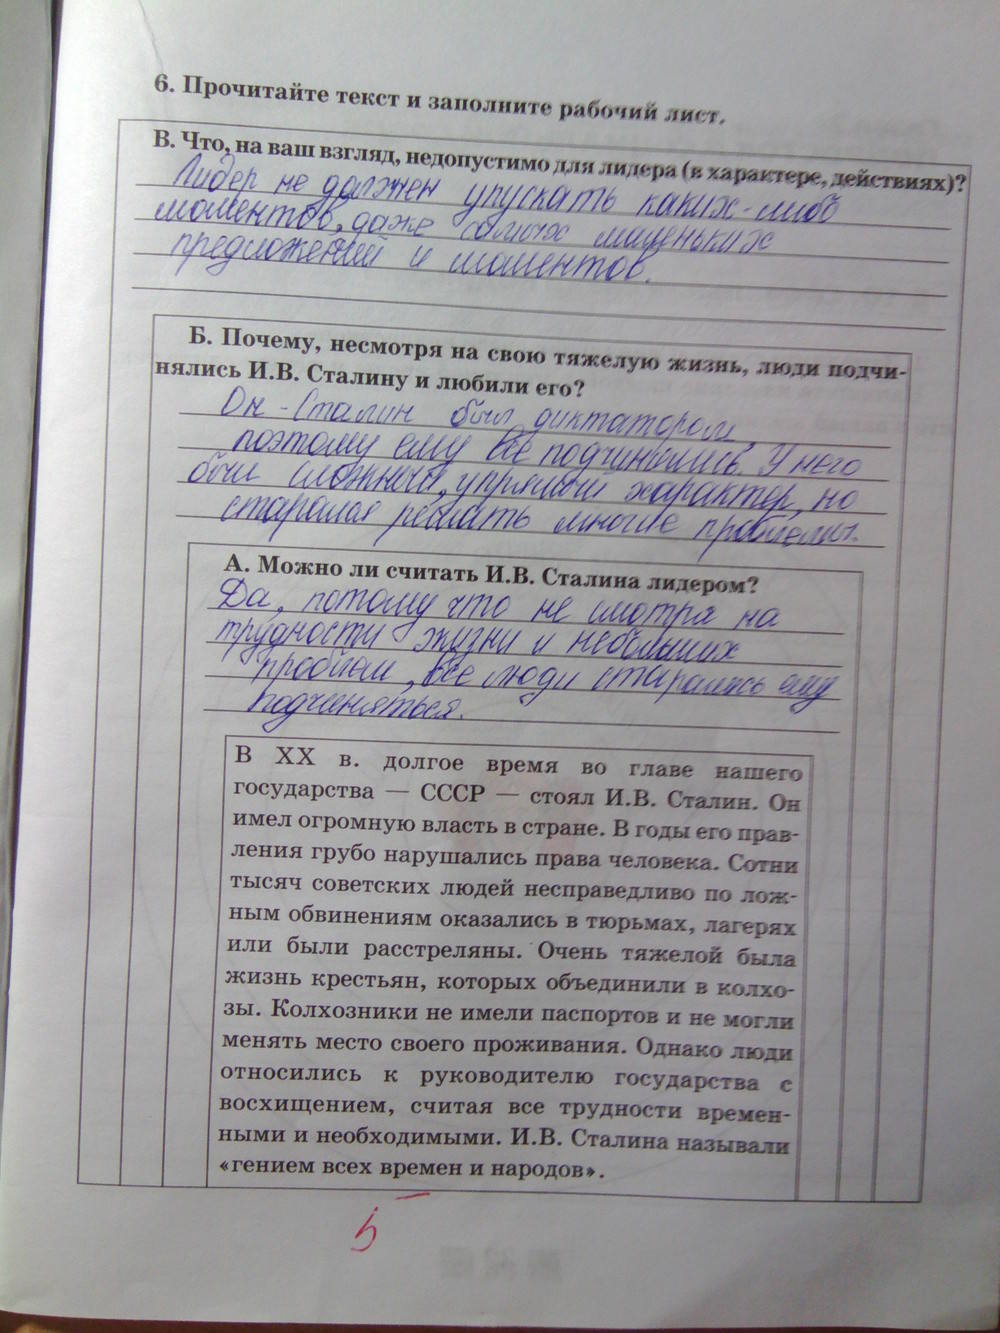 6. Прочитайте текст и заполните рабочий лист.
В. Что, на ваш взгляд, недопустимо для лидера (в характере, действиях)?
Лидер не должен упускать каких-либо
моментов, даже самых маленьких
предложений и моментов.
Б. Почему, несмотря на свою тяжелую жизнь, люди подчи-
нялись И.В. Сталину и любили его?
Он - Сталин был диктатором,
поэтому ему все подчинялись. У него
был сложный, упрямый характер, но
старался решать многие проблемы.
А. Можно ли считать И.В. Сталина лидером?
Да, потому что не смотря на
трудности жизни и небольших
проблем, все люди старались ему
подчиняться.
В XX в. долгое время во главе нашего
государства — СССР — стоял И.В. Сталин. Он
имел огромную власть в стране. В годы его прав-
ления грубо нарушались права человека. Сотни
тысяч советских людей несправедливо по лож-
ным обвинениям оказались в тюрьмах, лагерях
или были расстреляны. Очень тяжелой была
жизнь крестьян, которых объединили в колхо-
зы. Колхозники не имели паспортов и не могли
менять место своего проживания. Однако люди
относились к руководителю государства с
восхищением, считая все трудности времен-
ными и необходимыми. И.В. Сталина называли
«гением всех времен и народов».
5